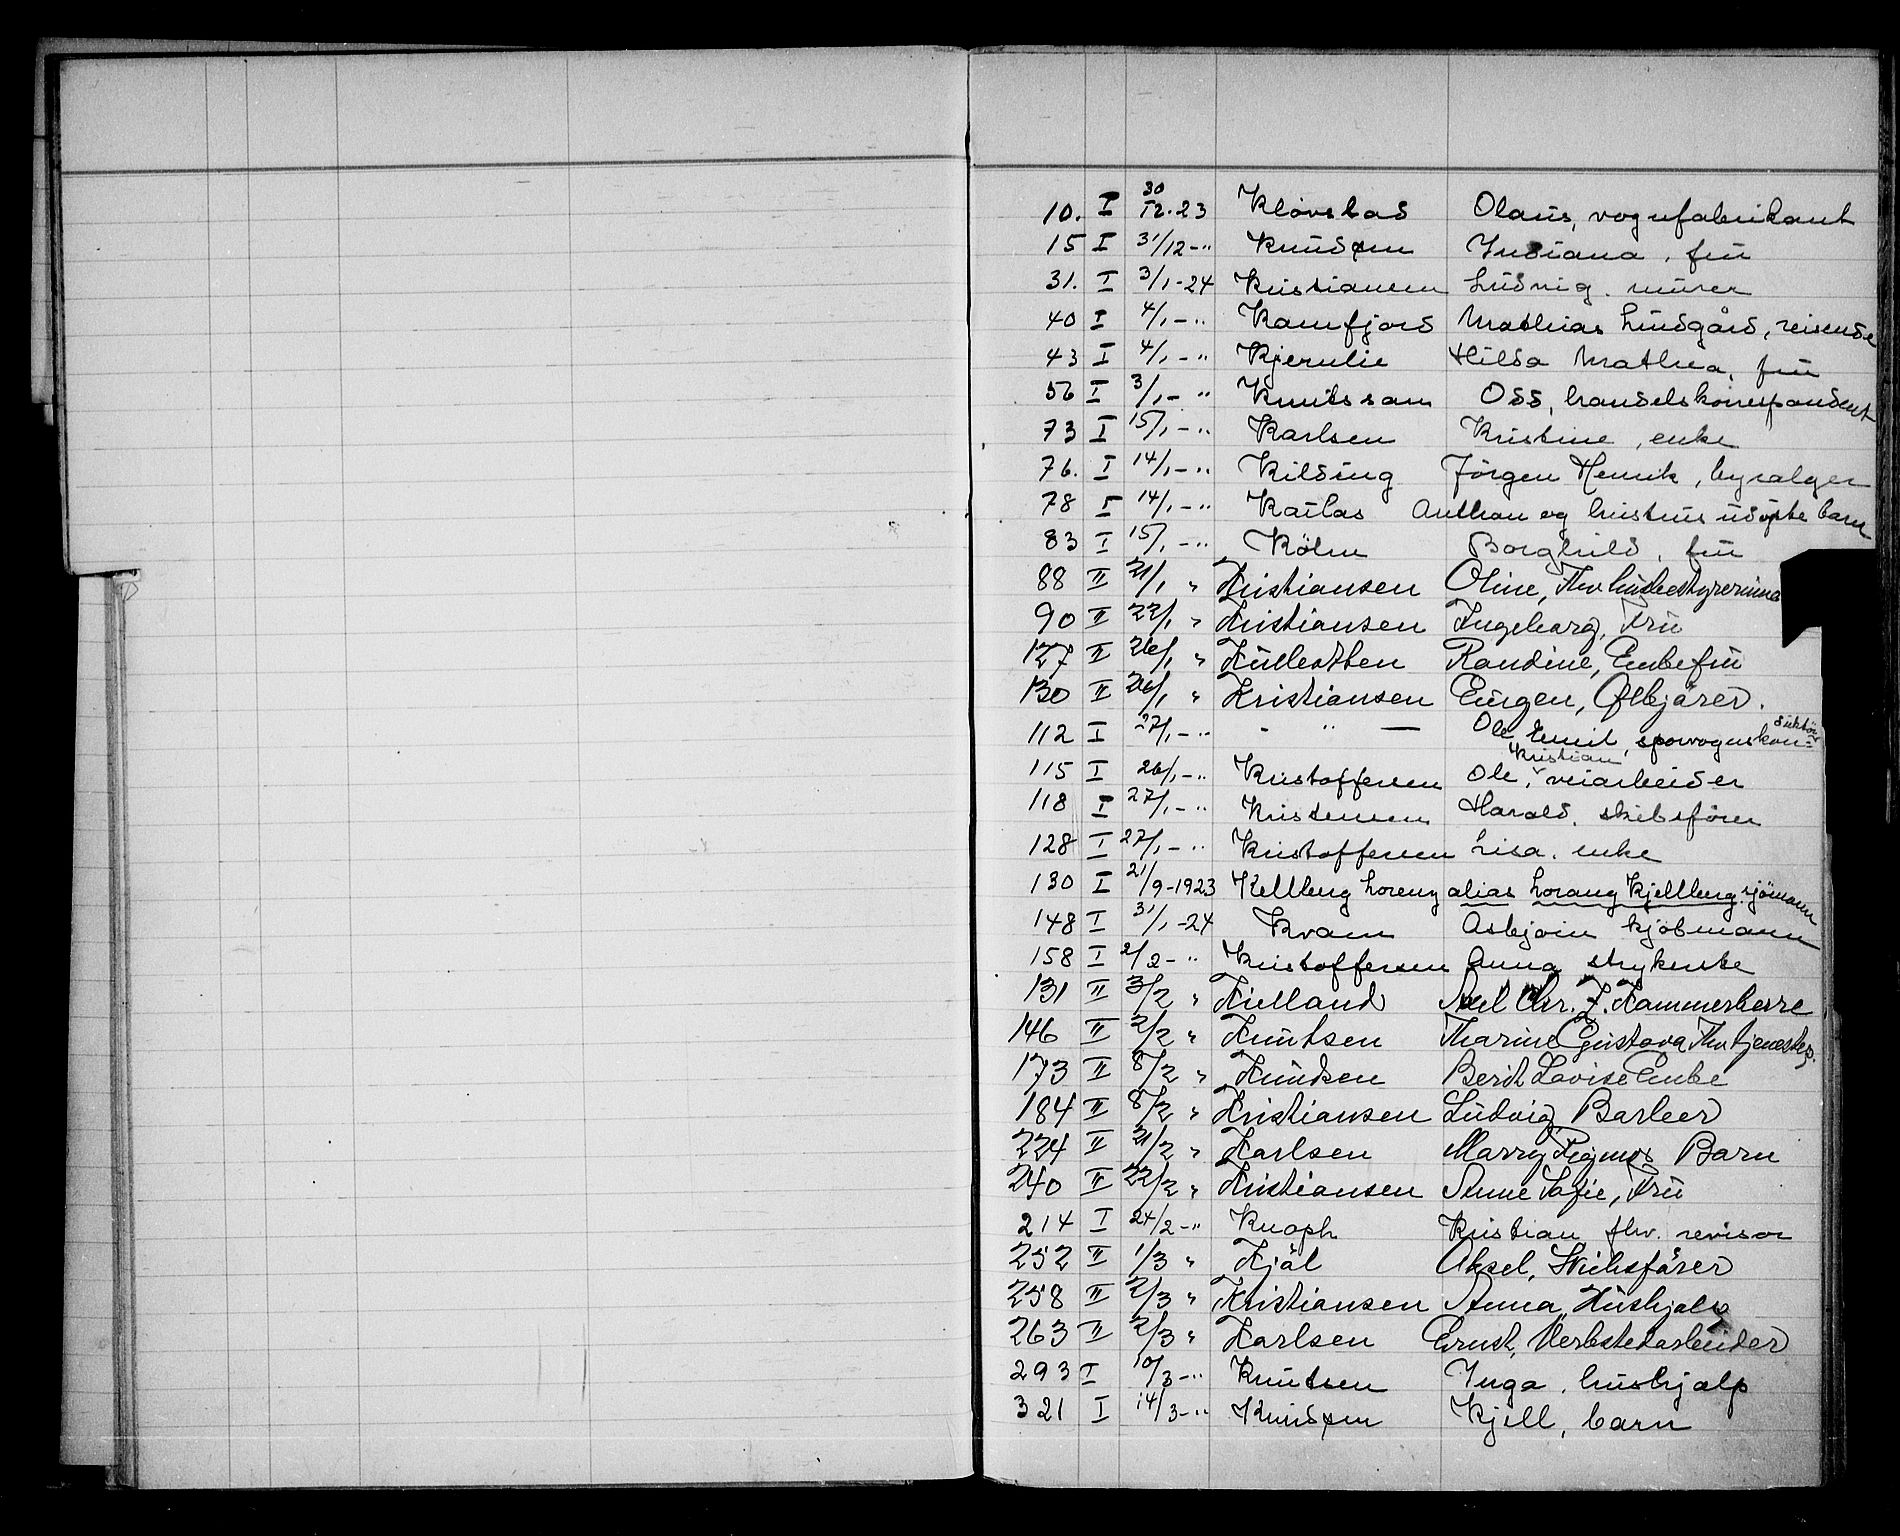 10. I 30/12-23 Kløvstad Olaus, vognfabrikant
15 I 31/12-" Knudsen Indiana, fru
31. I 3/1-24 Kristiansen Ludvig, murer
40 I 4/1-" Kamfjord Mathias Lindgård, reisende
43 I 4/1-" Kjerulie Hilda Mathea, fru
56 I 3/1-" Knutsson Odd, handelskorrespondent
73 I 15/1-" Karlsen Kristine, enke
76. I 14/1-" Kilding Jörgen Henrik, byselger
78 I 14/1-" Kaitas Anthon og hustrus udöpte barn
83 I 15/1-" Köhn Borghild, fru
88 II 21/1 " Kristiansen Oline, Fhv husbestyrerinne
90 II 22/1 " Kristiansen Ingeborg, Fru
127 II 26/1 " Randine, Enkefru
130 II 26/1 " Kristiansen Eugen, Ølkjører.
112 I 27/1-" - " - Ole Emil, sporvognskon=duktör
115 I 26/1-" Kristoffersen Ole Kristian, veiarbeider
118 I 27/1-" Kristensen Harald, skibsförer
128 I 27/1-" Kristoffersen Lisa, enke
130 I 21/9-1923 Kellberg Lorenz alias Lorang Kjellberg, sjömann
148 I 31/1-24 Kvam Asbjörn kjöbmann
158 I 2/2-" Kristoffersen Anna strykerske
131 II 3/2 " Kielland Axel Chr. Z. Kammerherre
146 II 2/2 " Knutsen Tharine Gustava Fhv tjenestep.
173 II 8/2 " Knudsen Berit Lovise Enke
184 II 8/2 " Kristiansen Ludvig, Barber
224 II 21/2 " Karlsen Marry Barn
240 II 22/2 " Kristiansen Anne Sofie, Fru
214 I 24/2-" Knoph Kristian fhv. revisor
252 II 1/3 " Kjöl Aksel, Skibsfører
258 II 2/3 " Kristiansen Anna, Hushjalp
263 II 2/3 " Karlsen Ernst, Verkstedarbeider
293 I 10/3-" Knutsen Inga, hushjalp
321 I 14/3-" Knudsen Kjell, barn